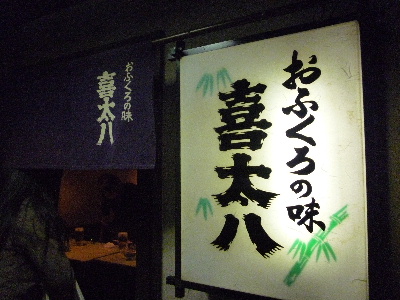 おふくろの味
喜太八
おふくろの味
喜太八